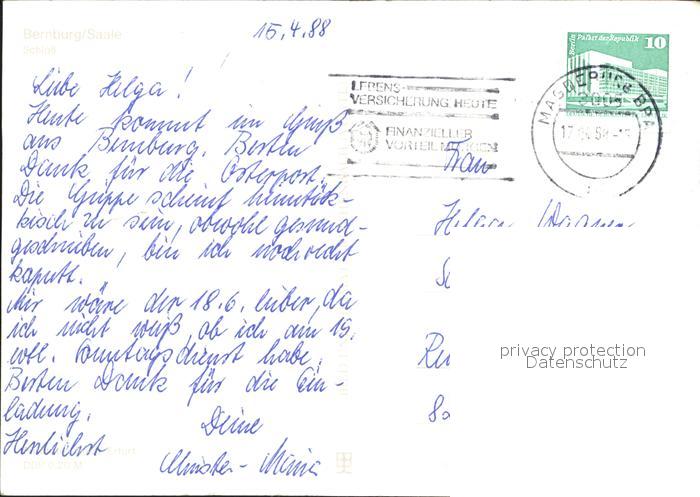 Bernburg/Saale
Schloß
15.4.88
Liebe Helga!
Heute kommt ein Gruß
aus Bernburg. Besten
Dank für die Osterpost.
Die Grippe scheint heimtük-
kisch zu sein, obwohl gesund-
geschrieben, bin ich noch recht
kaputt.
Mir wäre der 18.6. lieber, da
ich nicht weiß, ob ich am 19.
evtl. Sonntagsdienst habe.
Besten Dank für die Ein-
ladung.
Deine
Herzlichst
Berlin Palast der Republik 10
LEBENS-
VERSICHERUNG HEUTE
FINANZIELLER
VORTEIL MORGEN
MAGDEBURG BPA
Frau
Helga
privacy protection
Datenschutz